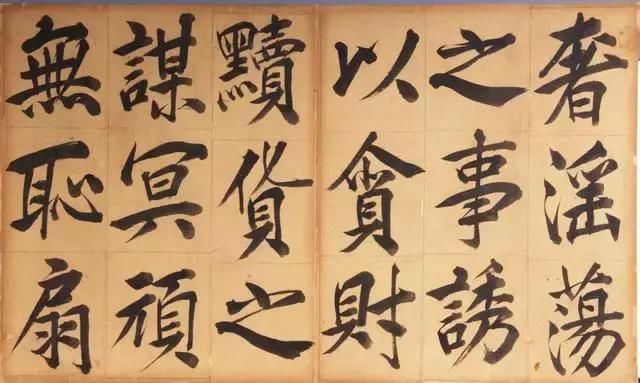 奢淫蕩
之事誘
以貪財
黷貨之
謀冥頑
無恥扇